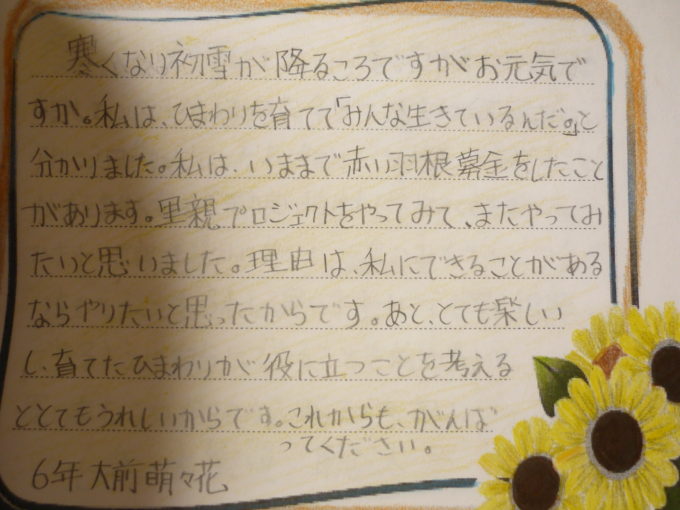 寒くなり初雪が降るころですがお元気で
すか。私は、ひまわりを育てて「みんな生きているんだ。」と
分かりました。私は、いままで赤い羽根募金をしたこと
があります。里親プロジェクトをやってみて、またやってみ
たいと思いました。理由は、私にできることがある
ならやりたいと思ったからです。あと、とても楽しい
し、育てたひまわりが役に立つことを考える
ととてもうれしいからです。これからも、がんば
ってください。
6年 大前萌々花